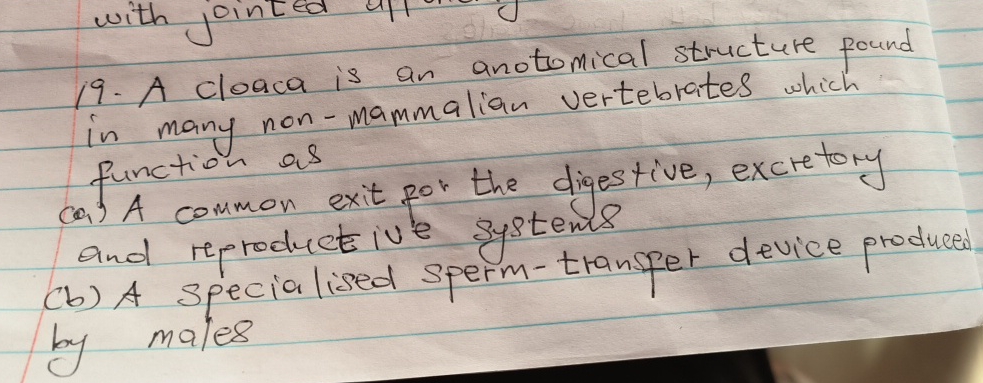 with jointed
19. A cloaca is an anotomical structure found
in many non-mammalian vertebrates which
function as
(a) A common exit for the digestive, excretory
and reproductive systems
(b) A specialised sperm-transfer device produced
by males